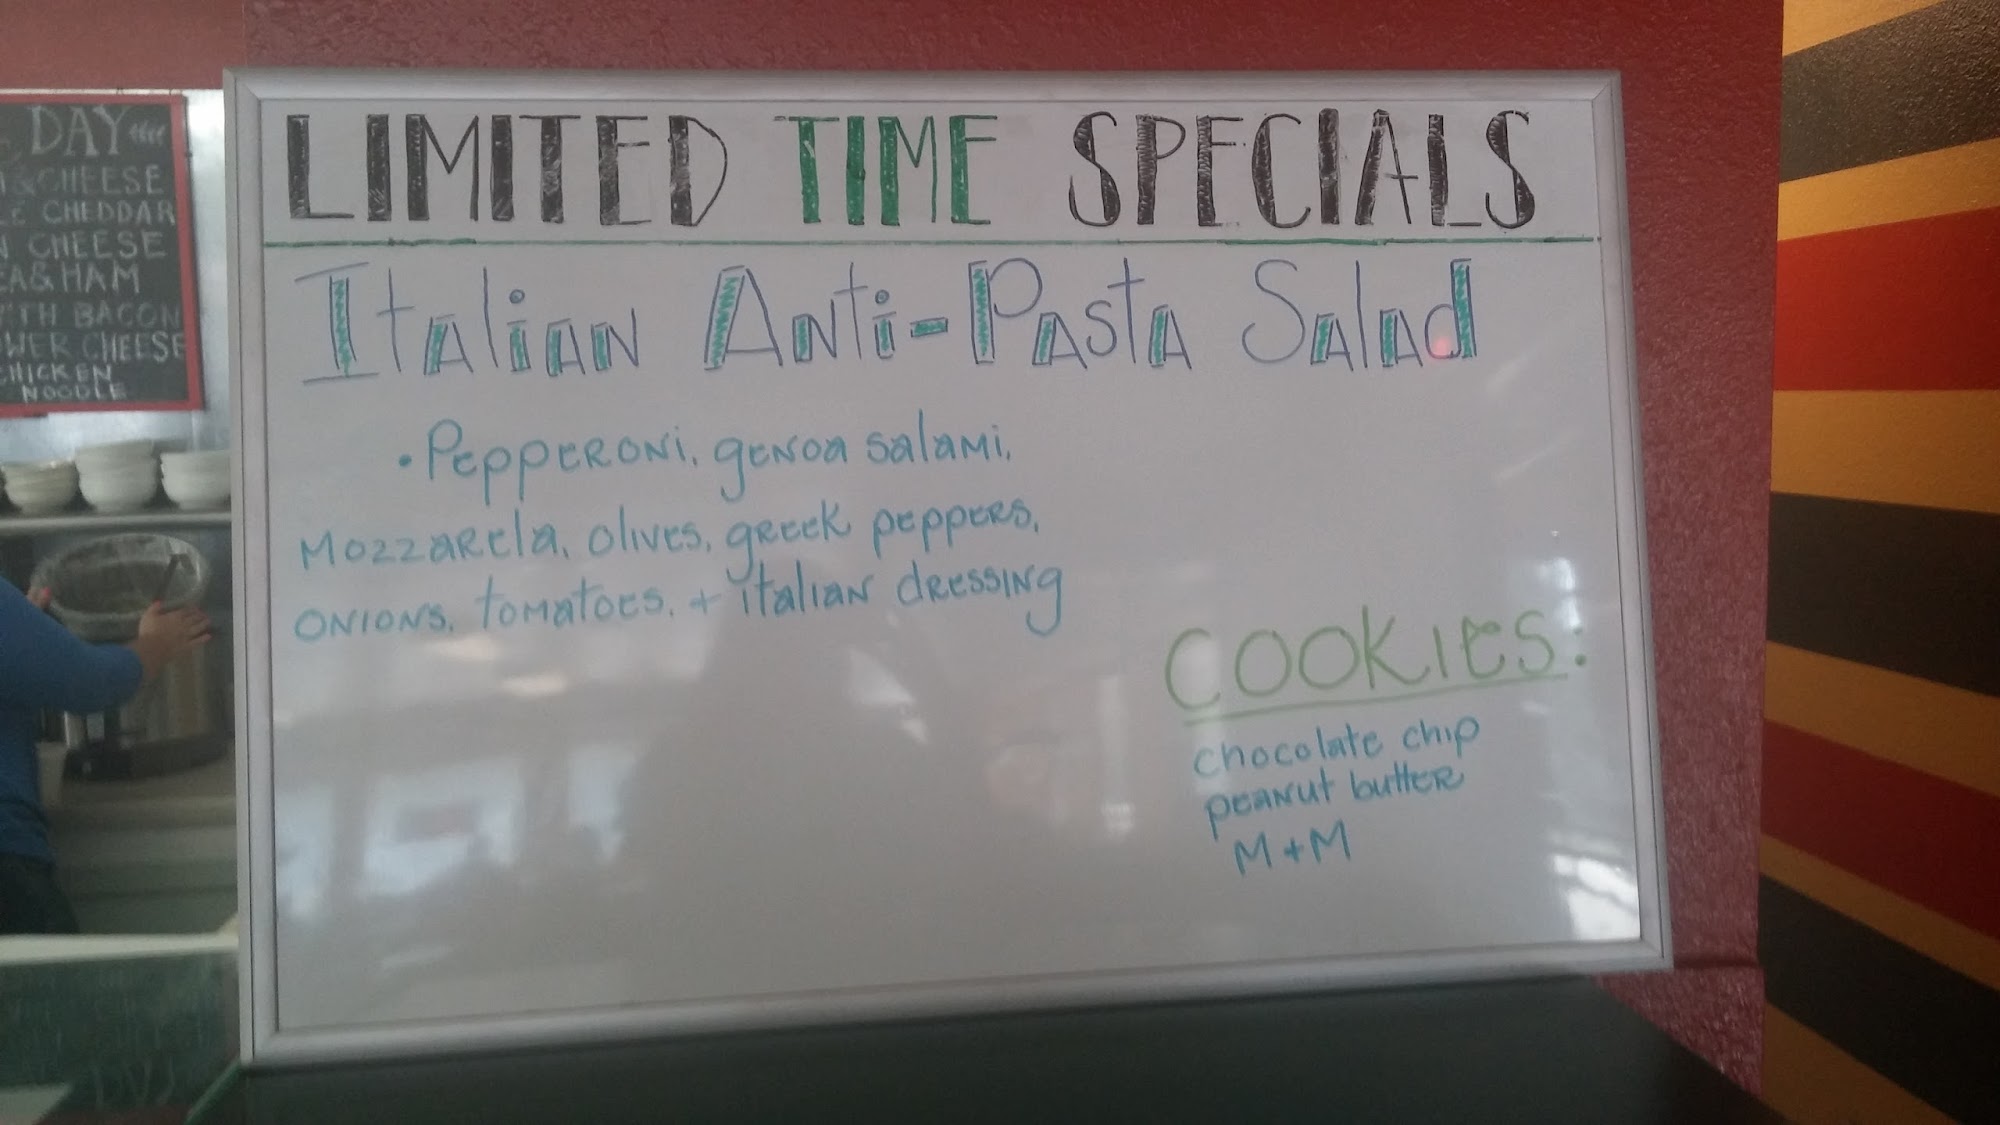 DAY
&CHEESE
CHEDDAR
CHEESE
&HAM
BACON
CHEESE
CHICKEN
NOODLE
LIMITED TIME SPECIALS
Italian Anti-Pasta Salad
• Pepperoni, genoa salami,
Mozzarela, olives, greek peppers,
onions, tomatoes, + italian dressing
COOKIES:
chocolate chip
peanut butter
M+M